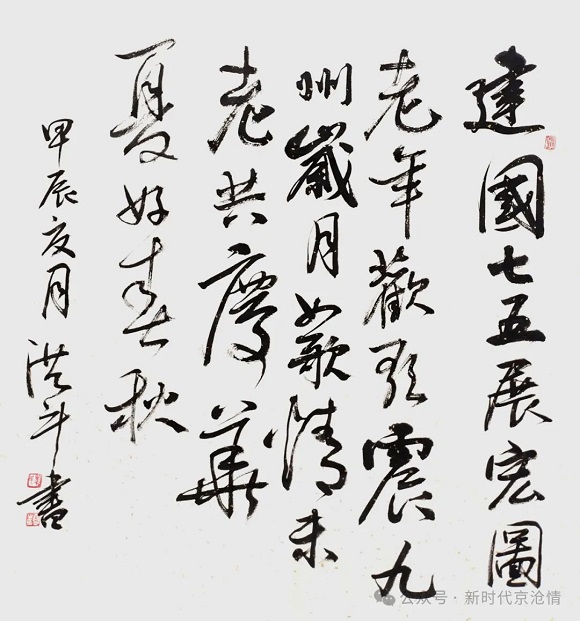 建國七五展宏圖
老年歡震九
州歲月如歌情未
老共慶華
夏好春秋
甲辰夏月洪斗書
公众号·新时代京沧情